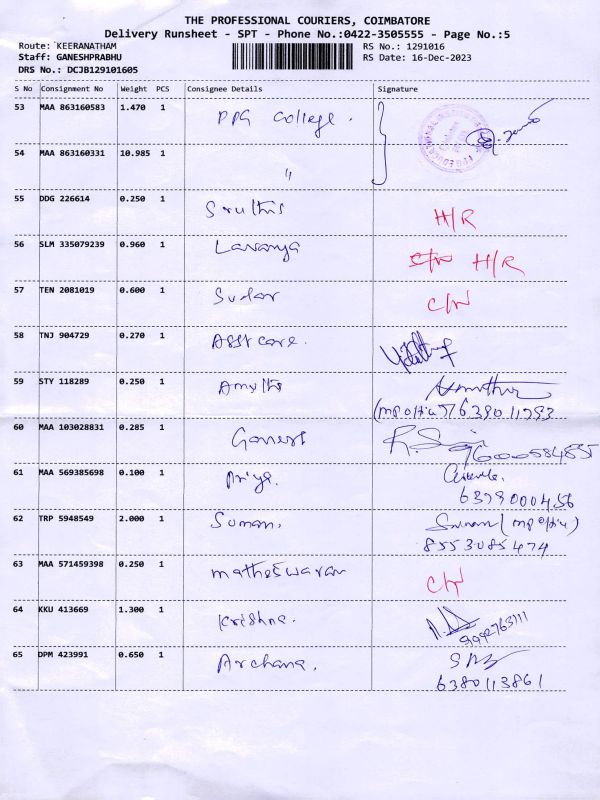 THE PROFESSIONAL COURIERS, COIMBATORE
Delivery Runsheet - SPT - Phone No.:0422-3505555 - Page No.:5
Route: KEERANATHAM RS No.: 1291016
Staff: GANESHPRABHU RS Date: 16-Dec-2023
DRS No.: DCJB129101605
S No Consignment No Weight PCS Consignee Details Signature
53 MAA 863160583 1.470 1 PPG College.
54 MAA 863160331 10.985 1 "
55 DDG 226614 0.250 1 Sruthis H/R
56 SLM 335079239 0.960 1 Lavanya H/R
57 TEN 2081019 0.600 1 Sudar C/N
58 TNJ 904729 0.270 1 Asst care.
59 STY 118289 0.250 1
60 MAA 103028831 0.285 1
61 MAA 569385698 0.100 1 Priya.
6379000456
62 TRP 5948549 2.000 1 Suman.
8553085474
63 MAA 571459398 0.250 1 matheswaran C/N
64 KKU 413669 1.300 1 Krishna.
65 DPM 423991 0.650 1 Archana.
6380113861